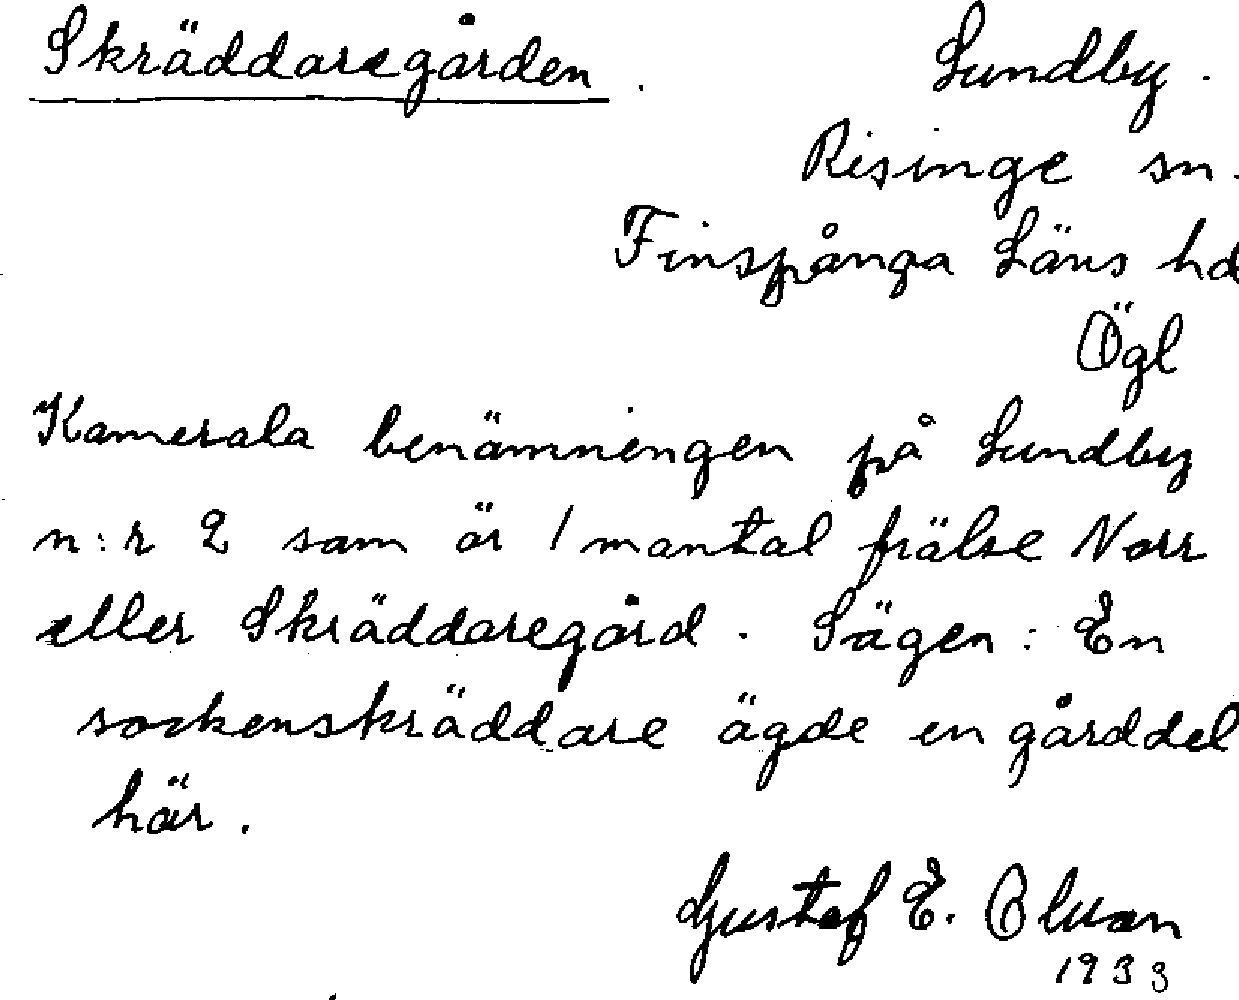 Skräddaregården. Lundby.
Risinge sn.
Finspånga Läns hd
Ögl
Kamerala benämningen på Lundby
n:r 2 som är 1 mantal frälse Norr
eller Skräddaregård. Sägen: En
sockenskräddare ägde en gårddel
här.
Gustaf E.
1933